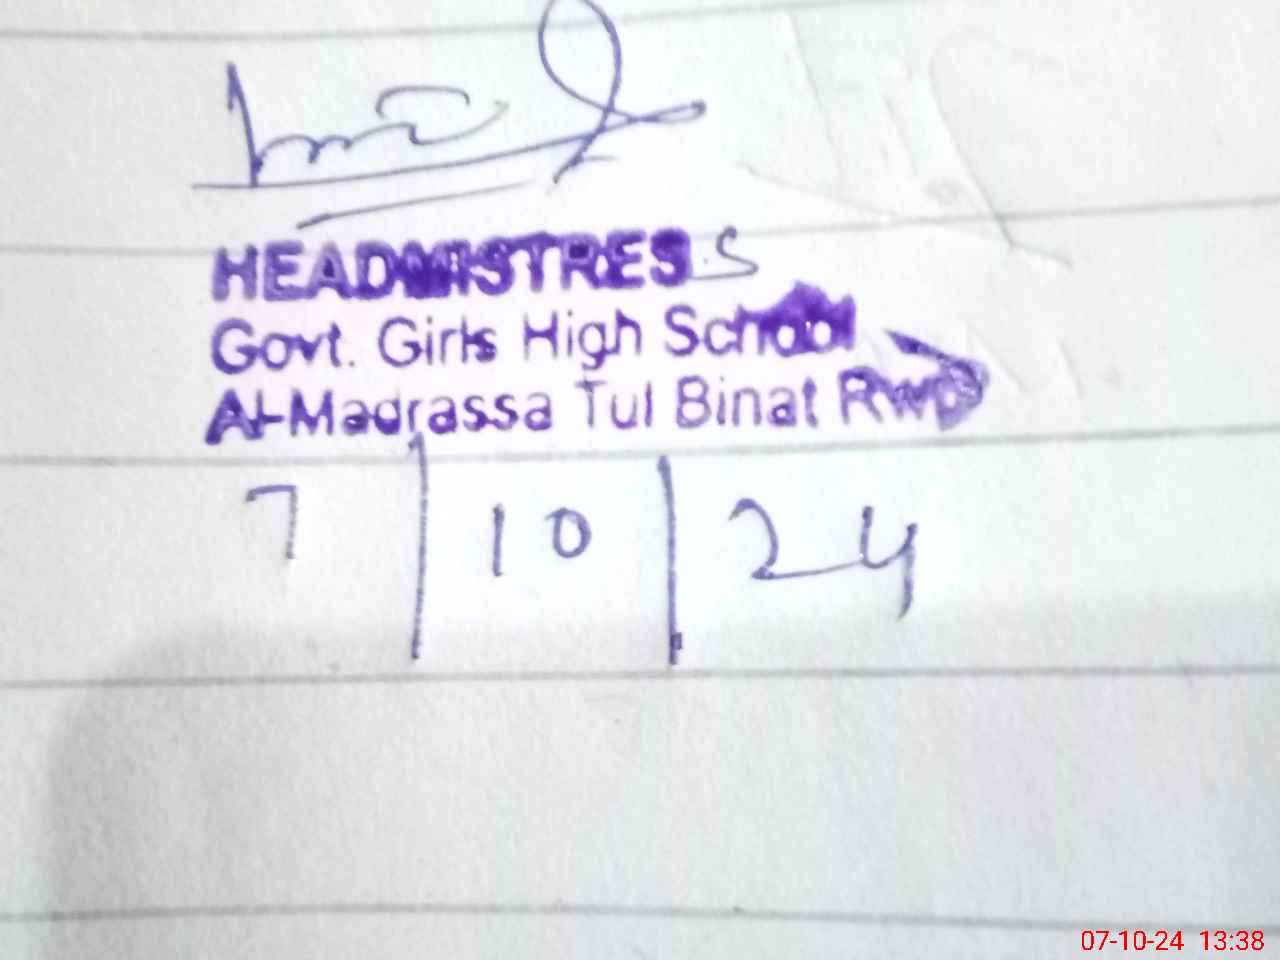 HEADMISTRESS
Govt. Girls High School
Al-Madrassa Tul Binat Rwp
7/10/24
07-10-24 13:38